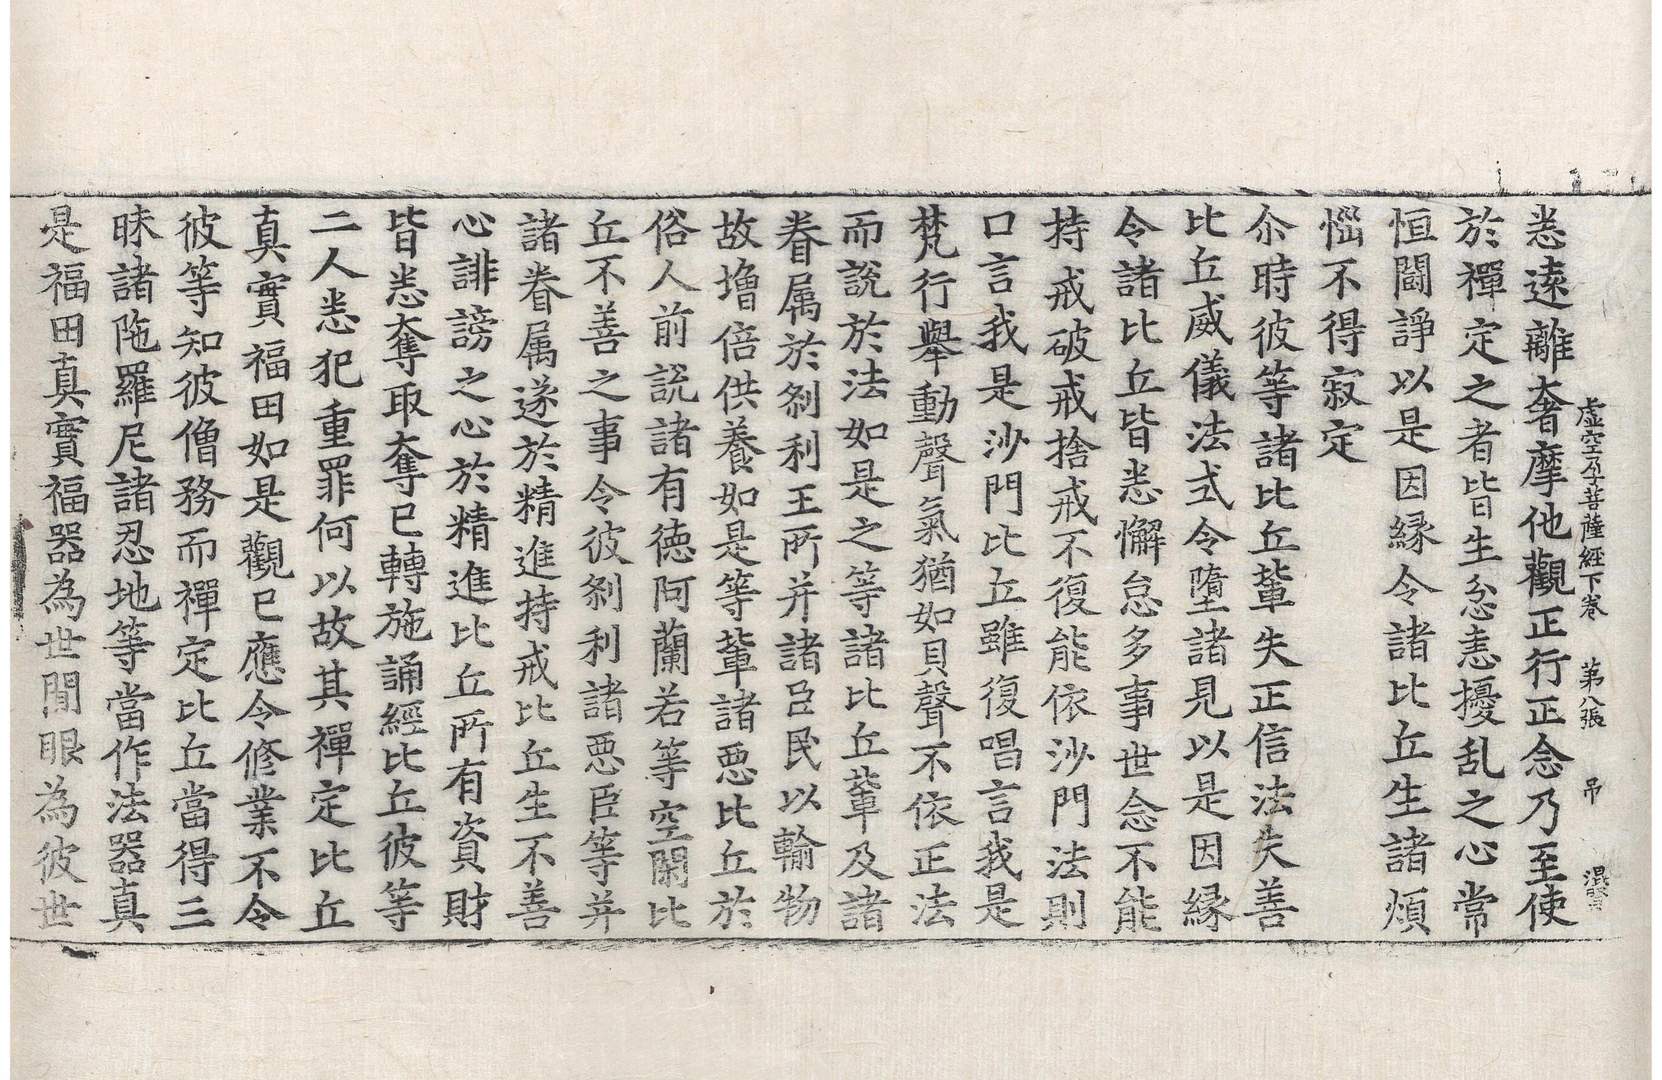 虚空孕菩薩經下卷　第八張　吊
悉遠離奢摩他觀正行正念乃至使
於禪定之者皆生忿恚擾乱之心常
恒鬪諍以是因緣令諸比丘生諸煩
惱不得寂定
尒時彼等諸比丘軰失正信法失善
比丘威儀法式令墮諸見以是因緣
令諸比丘皆悉懈怠多事世念不能
持戒破戒捨戒不復能依沙門法則
口言我是沙門比丘雖復唱言我是
梵行舉動聲氣猶如貝聲不依正法
而說於法如是之等諸比丘軰及諸
眷属於刹利王所并諸臣民以輸物
故増倍供養如是等軰諸悪比丘於
俗人前說諸有徳阿蘭若等空閑比
丘不善之事令彼刹利諸悪臣等并
諸眷属遂於精進持戒比丘生不善
心誹謗之心於精進比丘所有資財
皆悉奪取奪已轉施誦經比丘彼等
二人悉犯重罪何以故其禪定比丘
真實福田如是觀已應令修業不令
彼等知彼僧務而禪定比丘當得三
昧諸陁羅尼諸忍地等當作法器真
是福田真實福器為世間眼為彼世